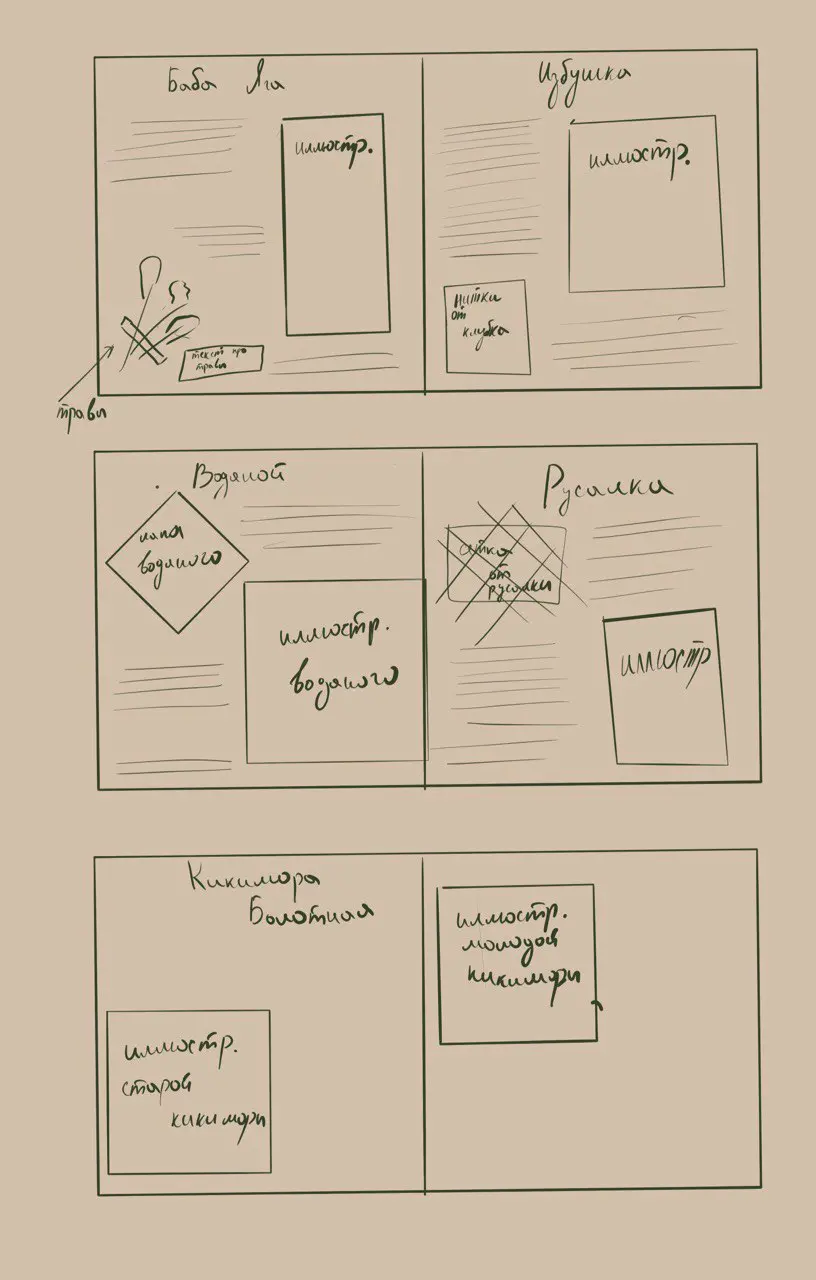 Баба Яга
иллюстр.
текст про
травы
травы
Избушка
иллюстр.
Нитки
от
клубка
Водяной
лапа
водяного
иллюстр.
водяного
Русалка
сетка
от
русалки
иллюстр
Кикимора
Болотная
иллюстр.
старой
кикиморы
иллюстр.
молодой
кикиморы